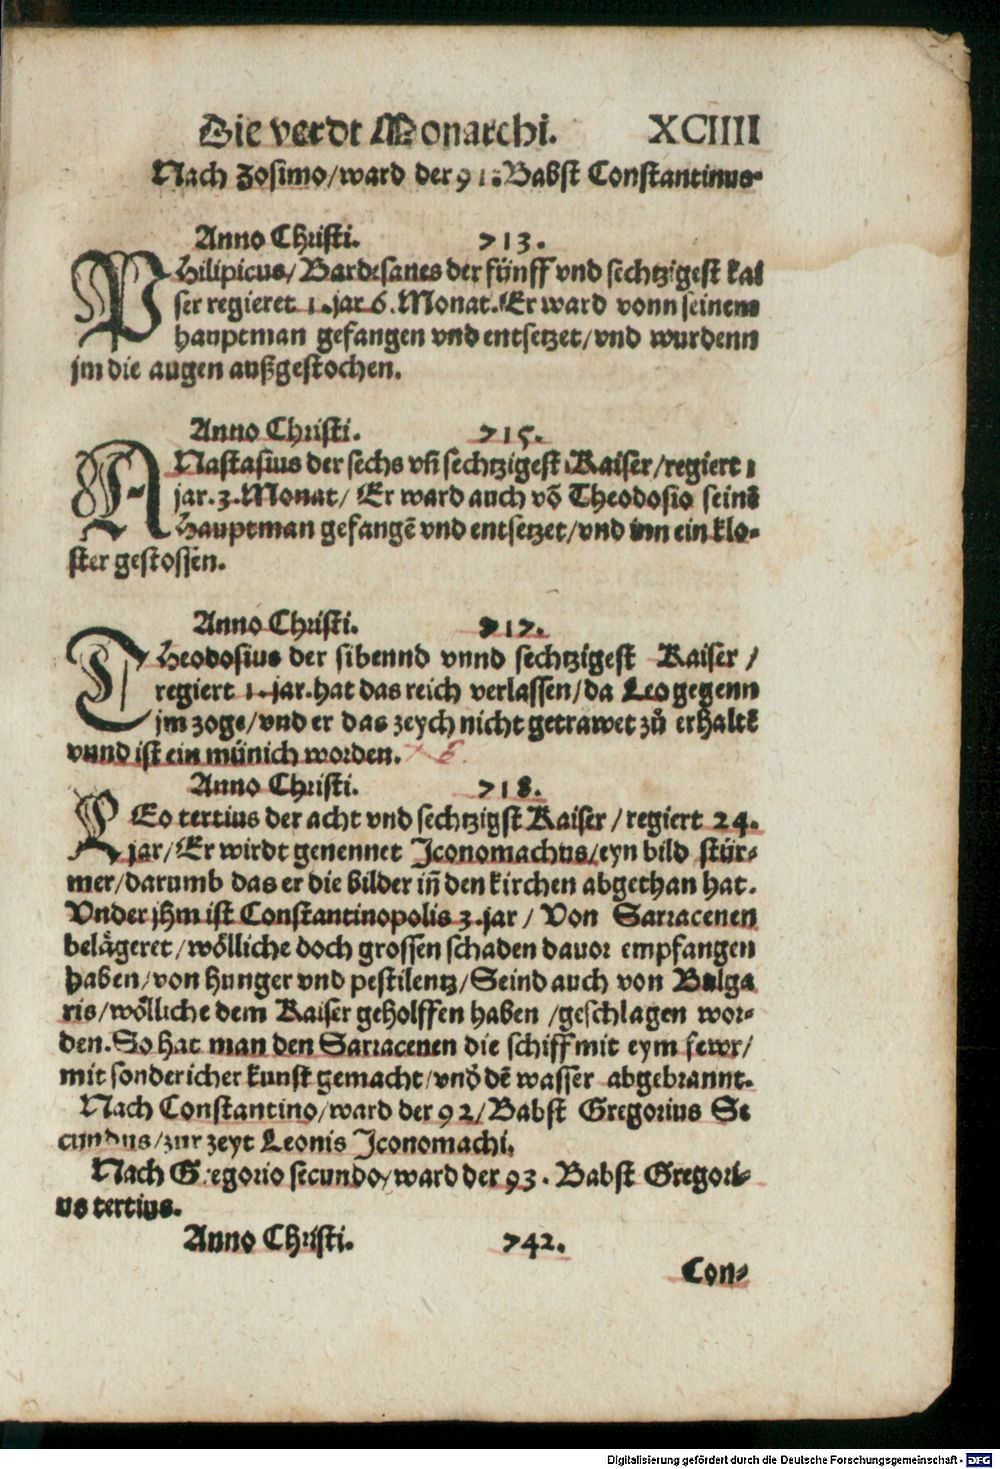 Die verdt Monarchi. XCIIII
Nach Zosimo/ward der 91. Babst Constantinus.
Anno Christi. 713.
PHilipicus/Bardesanes der fünff vnd sechtzigest kai
ser regieret 1.jar 6.Monat.Er ward vonn seinem
hauptman gefangen vnd entsetzet/vnd wurdenn
jm die augen außgestochen.
Anno Christi. 715.
ANastasius der sechs vñ sechtzigest Kaiser/regiert 1
jar.3.Monat/ Er ward auch võ Theodosio seinē
Hauptman gefangē vnd entsetzet/vnd inn ein klo-
ster gestossen.
Anno Christi. 717.
THeodosius der sibennd vnnd sechtzigest Kaiser/
regiert 1.jar.hat das reich verlassen/da Leo gegenn
jm zoge/vnd er das zeych nicht getrawet zů erhaltē
vnnd ist ein münich worden.
Anno Christi. 718.
LEo tertius der acht vnd sechtzigst Kaiser/regiert 24.
jar/Er wirdt genennet Jconomachus/eyn bild stür-
mer/darumb das er die bilder iñ den kirchen abgethan hat.
Vnder jhm ist Constantinopolis 3.jar/Von Sarracenen
belägeret/wölliche doch grossen schaden dauor empfangen
haben/von hunger vnd pestilentz/Seind auch von Bulga
ris/wölliche dem Kaiser geholffen haben/geschlagen wor-
den.So hat man den Sarracenen die schiff mit eym fewr/
mit sondericher kunst gemacht/vnd̄ dē wasser abgebrannt.
Nach Constantino/ward der 92/Babst Gregorius Se
cundus/zur zeyt Leonis Jconomachi.
Nach Gregorio secundo/ward der 93. Babst Gregori-
us tertius.
Anno Christi. 742.
Con-
Digitalisierung gefördert durch die Deutsche Forschungsgemeinschaft - DFG